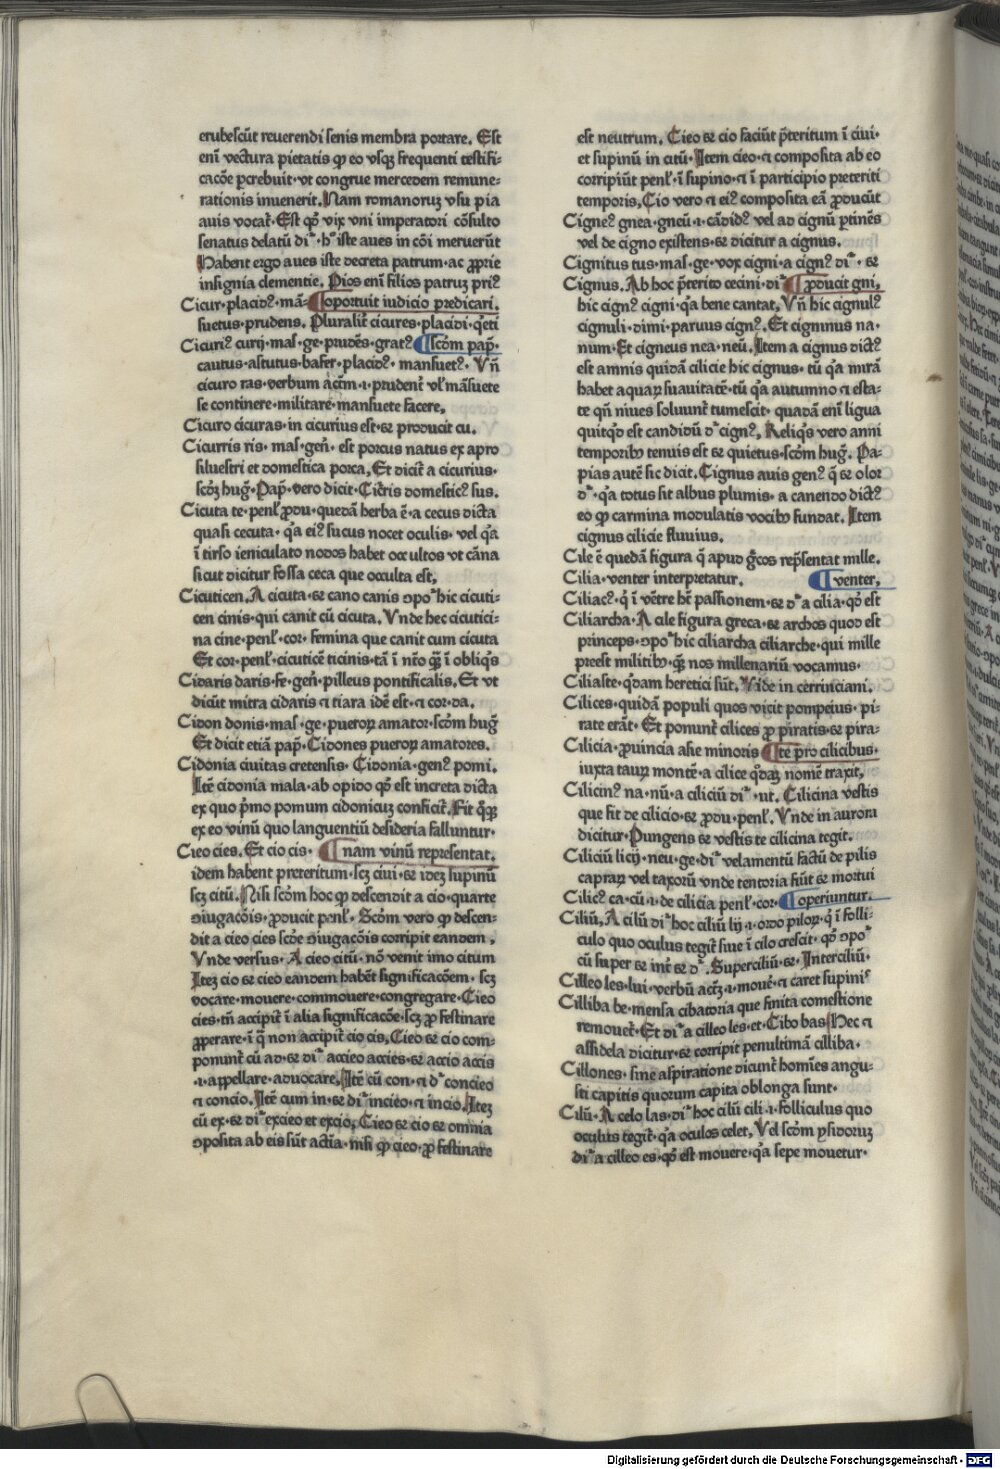 erubescūt reuerendi senis membra portare. Est
eni᷒ vectura pietatis ꝙ eo vsqꝫ frequenti testifi⸗
cacōe ꝑcrebuit·vt congrue mercedem remune⸗
rationis inuenerit. Nam romanoruꝫ vsu pia
auis vocat᷑·Est qd᷒ vix vni imperatori cōsulto
senatus delatū di᷒·hͦ iste aues in cōi meruerūt
Habent ergo aues iste decreta patrum·ac ꝓprie
insignia clementie. Pios eni᷒ filios patruꝫ pri᷒
Cicur·placid᷒·mā⸗ ¶oportuit iudicio predicari.
suetus·prudens. Pluralit᷑ cicures·placidi·q̄ti
Cicuri᷒ curij·mas·ge·prudēs·grat᷒ ¶scōm pap̄.
cautus·astutus·bafer·placid᷒·mansuet᷒·Vn̄
cicuro ras·verbum actm̄·i·prudent᷑ vl᷒ māsuete
se continere·militare·mansuete facere.
Cicuro cicuras·in cicurius est·⁊ producit cu.
Cicurris ris·mas·gen̄·est porcus natus ex apro
siluestri et domestica porca. Et dicit᷑ a cicurius·
scōꝫ hug᷒·Pap̄·vero dicit·Cic̄ris domestic᷒ sus.
Cicuta te·penl᷒ ꝓdu·quedā herba ē·a cecus dicta
quasi cecuta·q̇a ei᷒ sucus nocet oculis·vel q̇a
ī tirso ieniculato nodos habet occultos vt cāna
sicut dicitur fossa ceca que occulta est.
Cicuticen. A cicuta·⁊ cano canis ↄpoͬ hic cicuti⸗
cen cinis·qui canit cū cicuta. Vnde hec cicutici⸗
na cine·penl᷒·cor·femina que canit cum cicuta
Et cor·penl᷒·cicuticē ticinis·tā ī nt̄o qꝫ ī obliqͦs
Cidaris daris·fe·gen̄·pilleus pontificalis. Et vt
dicūt mitra cidaris ⁊ tiara idē est·⁊ cor·da.
Cidon donis·mas·ge·pueroꝝ amator·scōm hug᷒
Et dicit etiā pap̄·Cidones pueroꝝ amatores.
Cidonia ciuitas cretensis·Cidonia·gen᷒ pomi.
Itē cidonia mala·ab opido qd᷒ est increta dicta
ex quo p̄mo pomum cidonicuꝫ conficit᷑. Fit q̄qꝫ
ex eo vinū quo languentiū desideria falluntur·
Cieo cies. Et cio cis· ¶nam vinū representat.
idem habent preteritum·scꝫ ciui·⁊ ideꝫ supinū
scꝫ citū. Nisi scōm hoc ꝙ descendit a cio·quarte
ↄiugacōis·ꝓducit penl᷒. Scōm vero ꝙ descen⸗
dit a cieo cies scōe ↄiugacōis corripit eandem.
Vnde versus·A cieo citū·nō venit imo citum
Iteꝫ cio ⁊ cieo eandem habēt significacōem·scꝫ
vocare·mouere·commouere·congregare·Cieo
cies·tn̄ accipit᷑ ī alia significacōe·scꝫ ꝓ festinare
ꝓperare·ī q̄ non accipit᷑ cio cis. Cieo ⁊ cio com⸗
ponunt᷑ cū ad·⁊ di᷒ accieo accies·⁊ accio accis
·i·appellare·aduocare. Itē cū con·⁊ d᷒ concieo
⁊ concio. Itē cum in·⁊ di᷒ incieo·⁊ incio. Iteꝫ
cū ex·⁊ di᷒ excieo et excio. Cieo ⁊ cio ⁊ omnia
ↄposita ab eis sūt actiua·nisi ꝙ cieo·ꝓ festinare
est neutrum. Cieo ⁊ cio faciūt p̄teritum ī ciui·
et supinū in citū. Item cieo·⁊ composita ab eo
corripiūt penl᷒·ī supino·⁊ ī participio preteriti
temporis. Cio vero ⁊ ei᷒ composita eā ꝓducūt
Cigne᷒ gnea·gneū·i·cādid᷒ vel ad cignū ꝑtinēs
vel de cigno existens·⁊ dicitur a cignus.
Cignitus tus·mas·ge·vox cigni·a cign᷒ di᷒·⁊
Cignus. Ab hoc p̄terito cecini·di᷒ ¶ꝓducit gni.
hic cign᷒ cigni·q̇a bene cantat. Vn̄ hic cignul᷒
cignuli·dimi·paruus cign᷒. Et cigninus na·
num·Et cigneus nea·neū. Item a cignus dict᷒
est amnis quidā cilicie hic cignus·tū q̇a mirā
habet aquaꝝ suauitatē·tū q̇a autumno ⁊ esta⸗
te qn̄ niues soluunt᷑ tumescit·quadā eni᷒ ligua
quitqͦd est candidū d᷒ cign᷒. Reliqͦs vero anni
temporibꝫ tenuis est ⁊ quietus·scōm hug᷒. Pa⸗
pias autē sic dicit. Cignus auis gen᷒ q̄ ⁊ olor
d᷒·q̇a totus sit albus plumis·a canendo dict᷒
eo ꝙ carmina modulatis vocibꝫ fundat. Item
cignus cilicie fluuius.
Cile ē quedā figura q̄ apud ḡcos rep̄sentat mille.
Cilia·venter interpretatur. ¶venter.
Ciliac᷒·q̇ ī vētre h᷒ passionem·⁊ d᷒ a cilia·qd᷒ est
Ciliarcha·A cile figura greca·⁊ archos quod est
princeps·ↄpoͬ hic ciliarcha ciliarche·qui mille
preest militibꝫ·qꝫ nos millenariū vocamus·
Ciliaste·qͦdam heretici sūt. Vide in cerriniciani.
Cilices·quidā populi quos vicit pompeius·pi⸗
rate erāt·Et ponunt᷑ cilices ꝓ piratis·⁊ pira⸗
Cilicia·ꝓuincia asie minoris ¶te pro cilicibus·
iuxta tauꝝ montē·a cilice qͦdaꝫ nomē traxit.
Cilicin᷒ na·nū·a ciliciū di᷒·ut. Cilicina vestis
que fit de cilicio·⁊ ꝓdu·penl᷒. Vnde in aurora
dicitur·Pungens ⁊ vestis te cilicina tegit.
Ciliciū licij·neu·ge·di᷒ velamentū factū de pilis
capraꝝ vel taxorū vnde tentoria fiūt ⁊ mortui
Cilic᷒ ca·cū·i·de cilicia penl᷒·cor· ¶operiuntur.
Ciliū. A cilū di᷒ hoc ciliū lij·i·ordo piloꝝ·q̇ ī folli⸗
culo quo oculus tegit᷑ siue ī cilo crescit·qd᷒ ↄpoͬ
cū super ⁊ int᷑ ⁊ d᷒. Superciliū·⁊·Interciliū·
Cilleo les·lui·verbū actꝫ·i·moue᷑·⁊ caret supinis
Cilliba be·mensa cibatoria que finita comestione
remouet᷑·Et di᷒ a cilleo les·et·Cibo bas. Hec ⁊
assidela dicitur·⁊ corripit penultimā cilliba·
Cillones·sine aspiratione dicunt᷑ homīes angu⸗
sti capitis quorum capita oblonga sunt·
Cilū·A celo las·di᷒ hoc cilū cili·i·folliculus quo
oculus tegit᷑·q̇a oculos celet. Vel scōm ysidoruꝫ
di᷒ a cilleo es·qd᷒ est mouere·q̇a sepe mouetur·
Digitalisierung gefördert durch die Deutsche Forschungsgemeinschaft - DFG